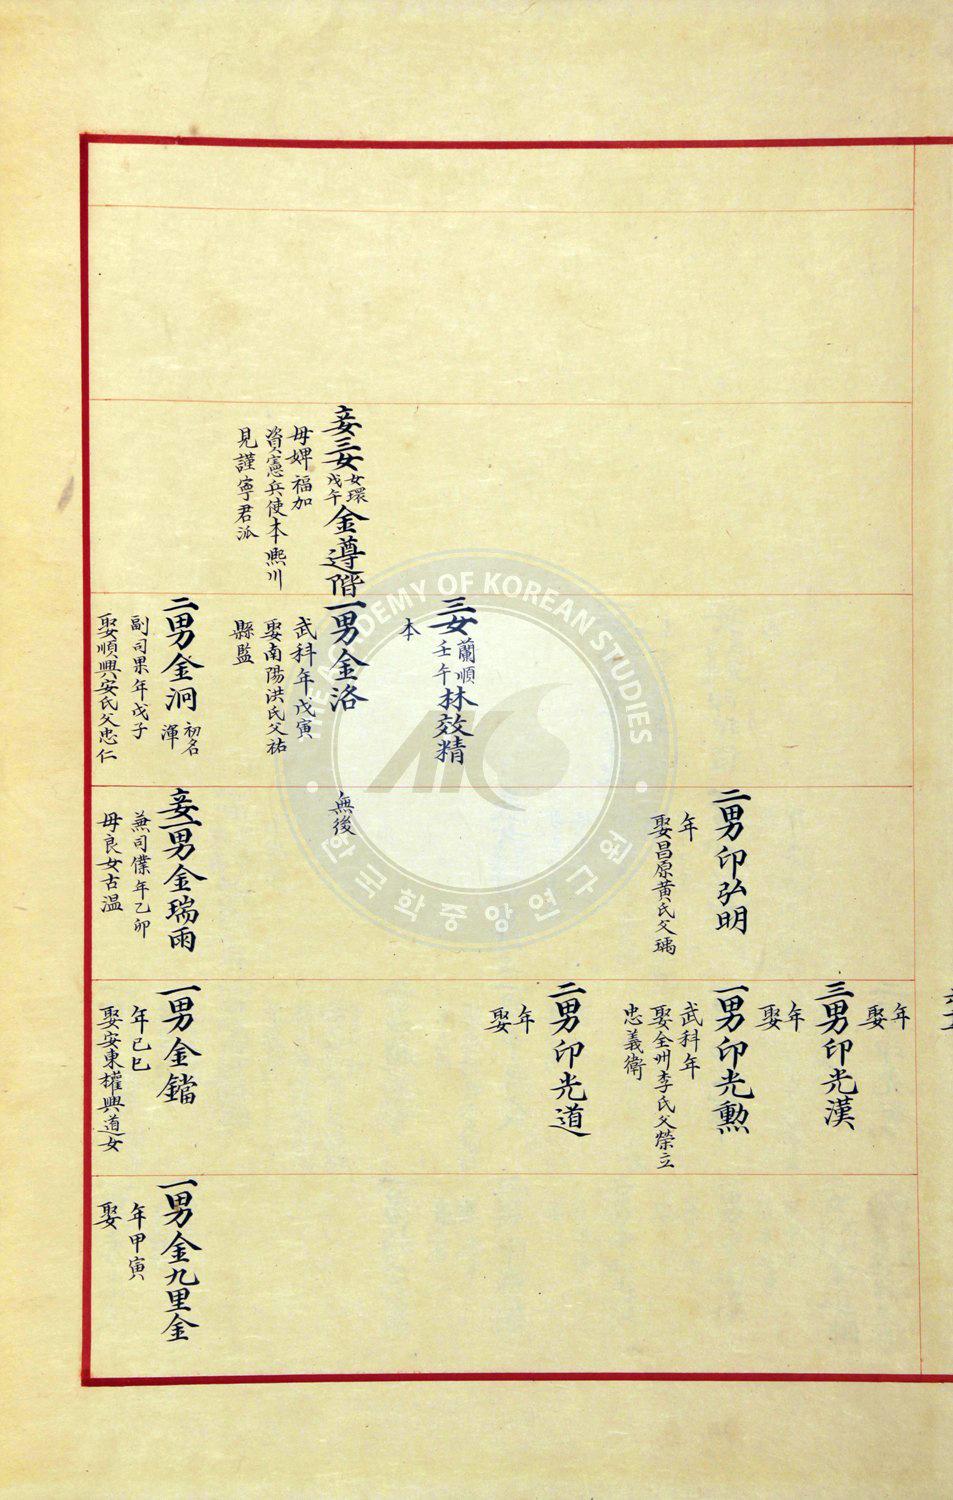 妾三女 女環 戊午 金遵階
母婢福加
資憲兵使本熙川
見謹寧君派
三女 蘭順 壬午 林效精
本
一男金洛
武科年戊寅
娶南陽洪氏父祐
縣監
二男金泂 初名渾
副司果年戊子
娶順興安氏父忠仁
二男印弘明
年
娶昌原黃氏父瑀
無後
妾一男金瑞雨
兼司僕年乙卯
母良女古溫
年
娶
三男印光漢
年
娶
一男印光勳
武科年
娶全州李氏父榮立
忠義衛
二男印光道
年
娶
一男金鐺
年己巳
娶安東權興道女
一男金九里金
年甲寅
娶
THE ACADEMY OF KOREAN STUDIES
AKS
한국학중앙연구원